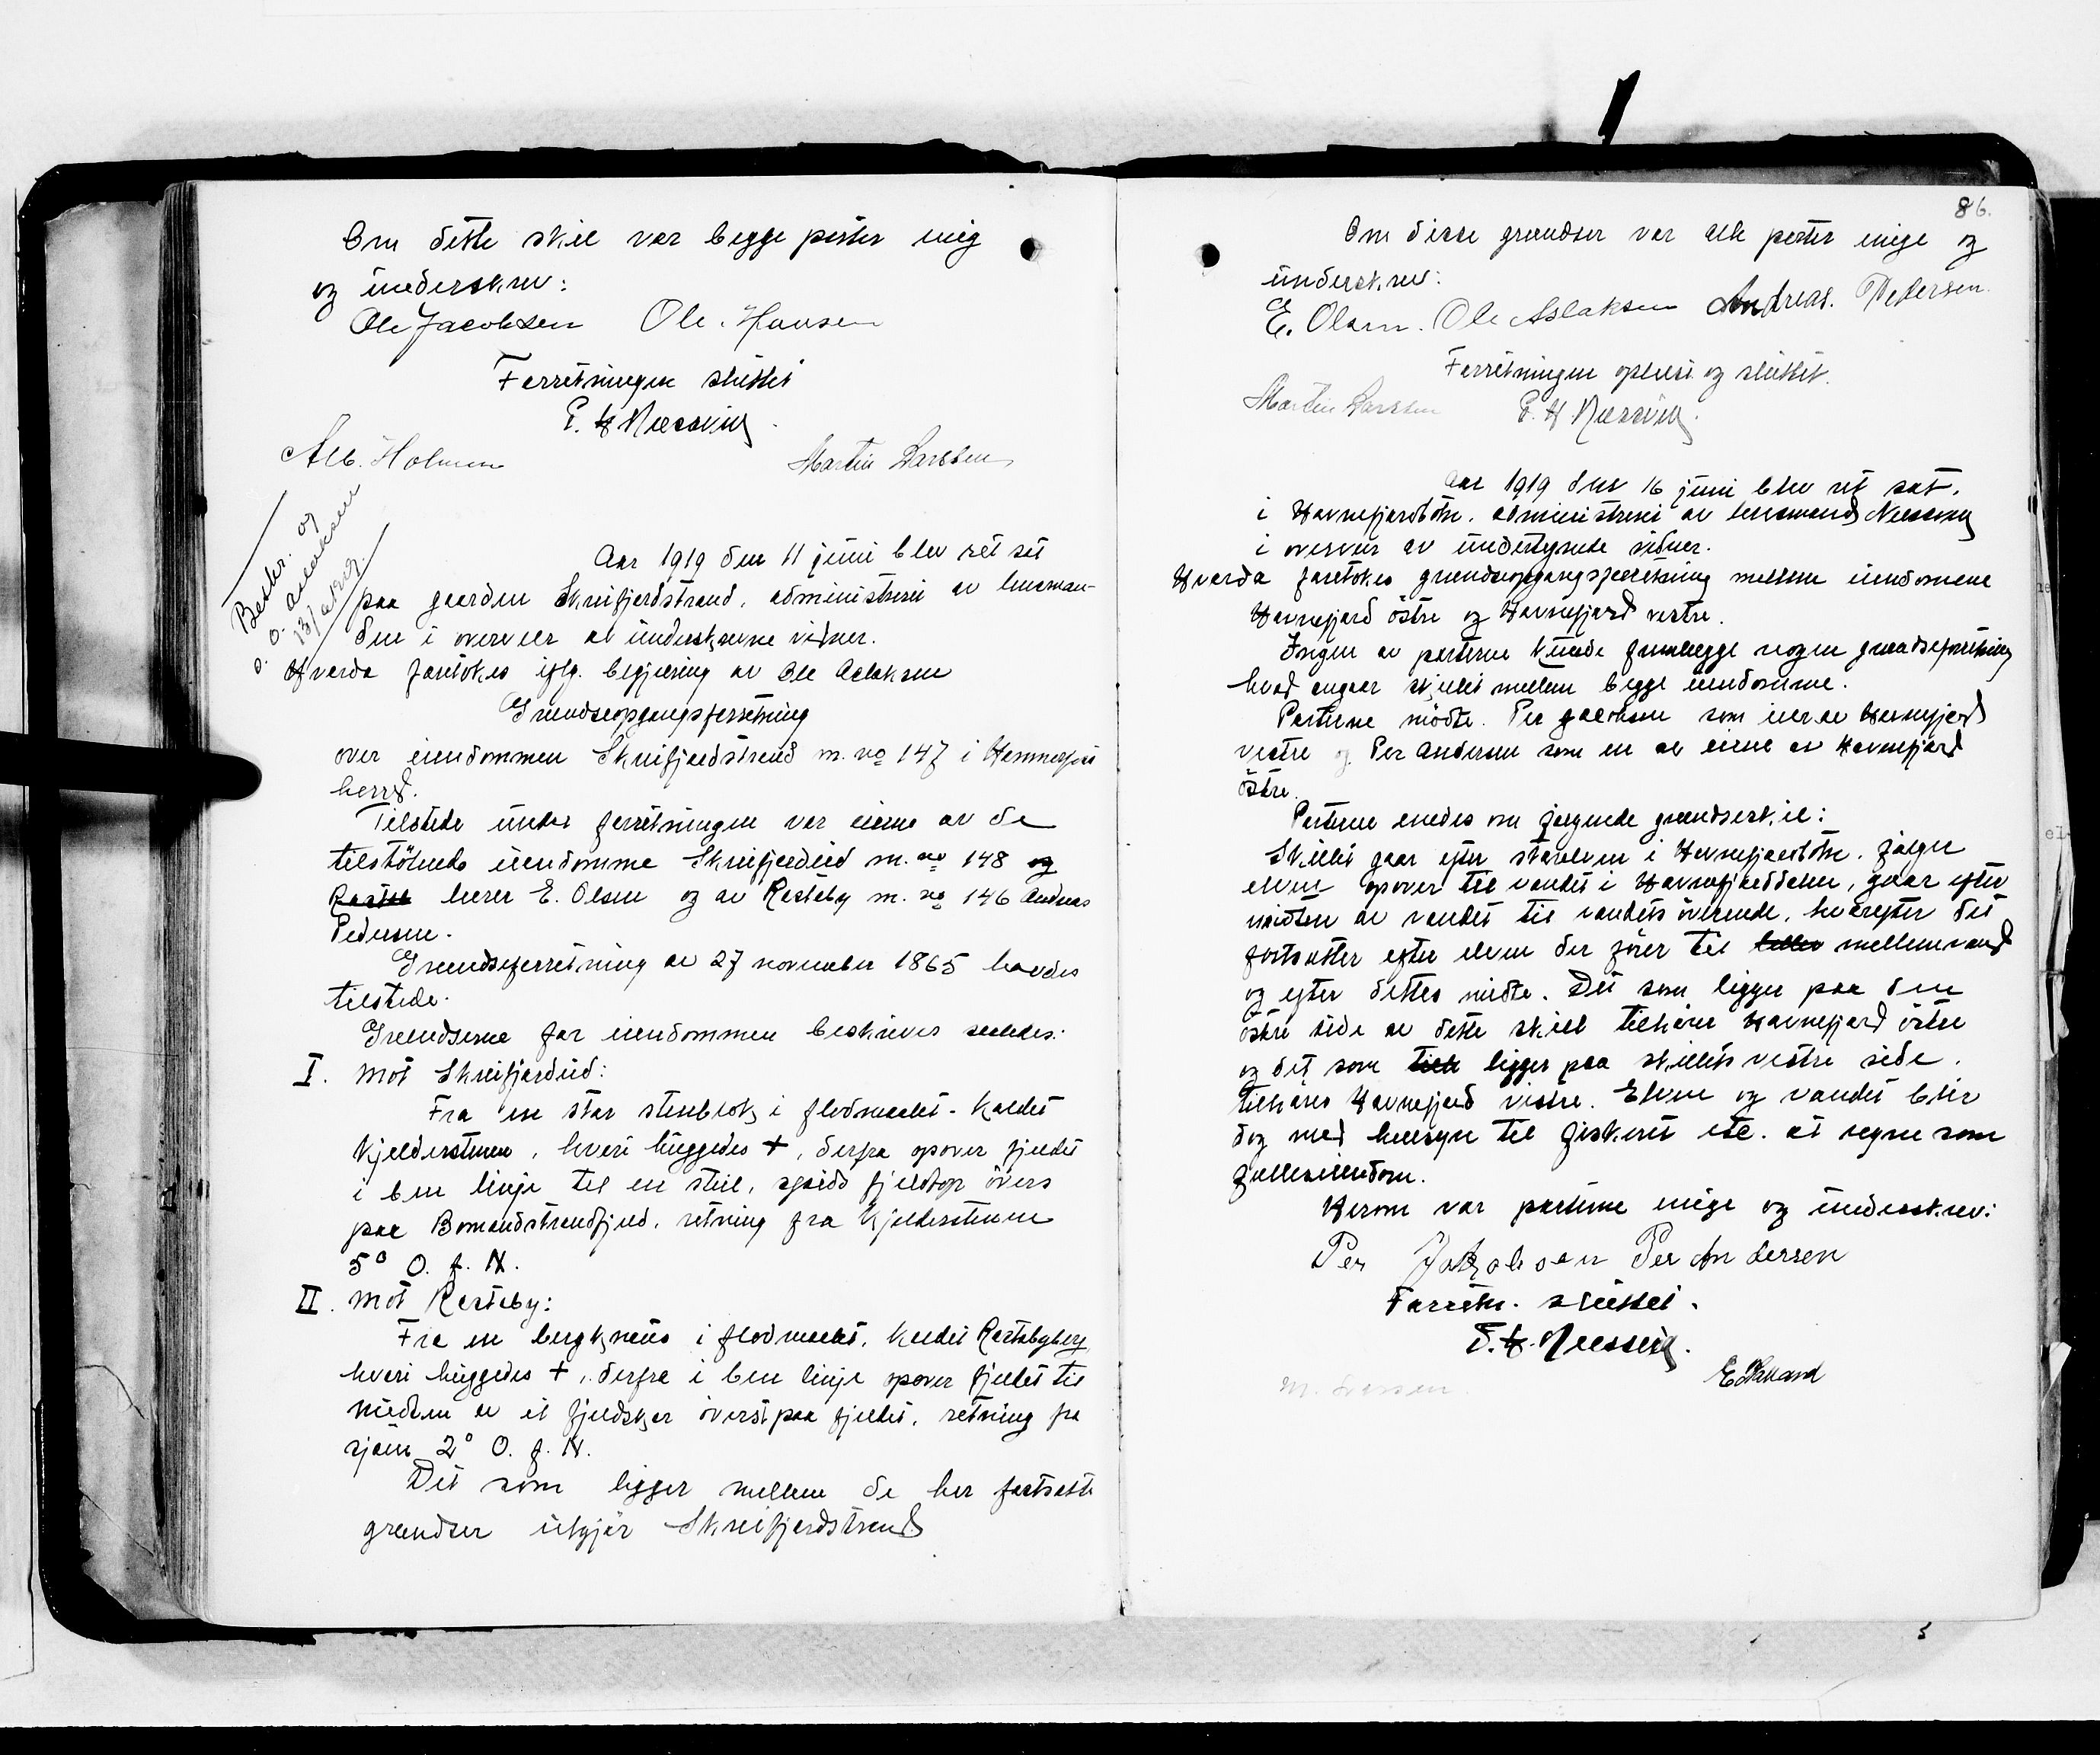 Om dette skil var begge parter enig
og underskrev:
Ole Jacobsen Ole. Hansen
Forretningen sluttet
Alb. Holmen Martin Larssen
Besktr. og
o. Aslaksen
13/
Aar 1919 den 11 juni blev ret sat
paa gaarden Skreifjordstrand, administreret av lensman-
den i overvær av underskrevne vidner.
Hvorda foretokes iflg. begjæring av Ole Aslaksen
Grændseopgangsforretning
over eiendommen Skreifjordstrand m. no 147 i Hammerfest
herred.
Tilstede under forretningen var eierne av de
tilstötende eiendomme Skreifjordeid m. no 148 og
lærer E. Olsen og av Rastaby m. no 146 Andreas
Pedersen.
Grændseforretning av 27 november 1865 havdes
tilstede.
Grændserne for eiendommen beskrives saaledes:
I. Mot Skreifjordeid:
Fra en stor stenblok i flodmaalet. kaldet
Kjelderstenen, hvori huggedes +, derfra opover fjeldet
i ben linje til en steil, spids fjeldtop övers
paa Bomandstrandfjeld, retning fra Kjelderstenen
5° O. f. N.
II. Mot Rastaby:
Fra en bergknaus i flodmaalet, kaldet Rastabyberg
hvori huggedes +, derfra i ben linje opover fjeldet til
midten av et fjeldskar överst paa fjeldet, retning fra
sjöen 2° O. f. N.
Det som ligger mellem de her fastsatte
grændser utgjör Skreifjordstrand
86.
Om disse grændser var alle parter enige og
underskrev:
E. Olsen. Ole Aslaksen Andreas. Pedersen.
Forretningen oplæst og sluttet.
Martin Larssen
Aar 1919 den 16 juni blev ret sat.
i Havnefjordbotn. administreret av lensmand
i overvær av undertegnede vidner.
Hvorda foretokes grændseopgangsforretning mellem eiendomene
Havnefjord östre og Havnefjord vestre.
Ingen av parterne kunde fremlægge nogen grændseforretning
hvad angaar skjellet mellem begge eiendomme.
Parterne mödte. Per Jacobsen som eier av Havnefjord
vestre og Per Andersen som en av eierne av Havnefjord
östre.
Parterne enedes om fölgende grændseskil:
Skillet gaar efter storelven i Havnefjordbotn. fölger
elven opover til vandet i Havnefjorddalen, gaar efter
midten av vandet til vandets överende, hvorefter det
fortsætter efter elven der förer til mellemvand
og efter dettes midte. Det som ligger paa den
östre side av dette skill tilhörer Havnefjord östre
og det som ligger paa skillets vestre side.
tilhöres Havnefjord vestre. Elven og vandet blir
dog med hensyn til fiskeret etc. at regne som
fælleseiendom.
Herom var parterne enige og underskrev:
Per Jakobsen Per Andersen
Forretn. sluttet.
M. Larssen